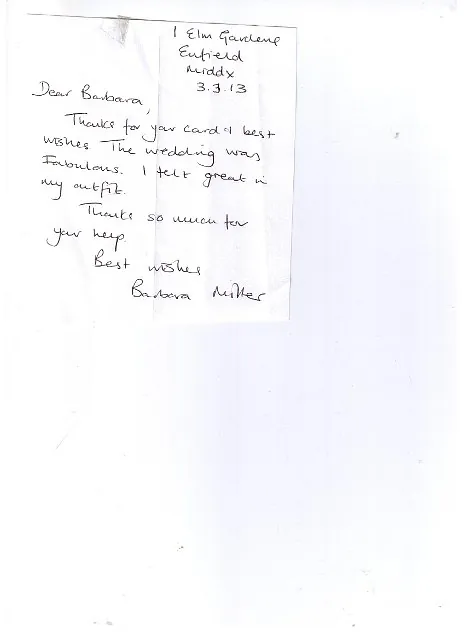 1 Elm Gardens
Enfield
Middx
3.3.13
Dear Barbara,
Thanks for your card & best
wishes The wedding was
Fabulous. I felt great in
my outfit.
Thanks so much for
your help.
Best wishes
Barbara Miller